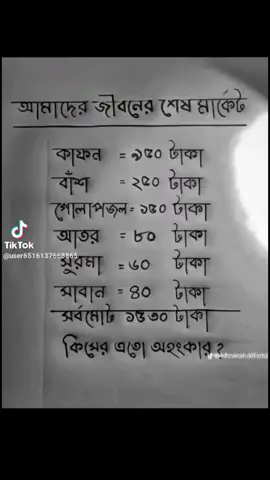 আমাদের জীবনের শেষ মার্কেট
কাফন = ৯৫০ টাকা
বাঁশ = ২৫০ টাকা
গোলাপজল = ১৫০ টাকা
আতর = ৮০ টাকা
সুরমা = ৬০ টাকা
সাবান = ৪০ টাকা
সর্বমোট ১৫৩০ টাকা
কিসের এতো অহংকার ?
TikTok
@user6516137668865